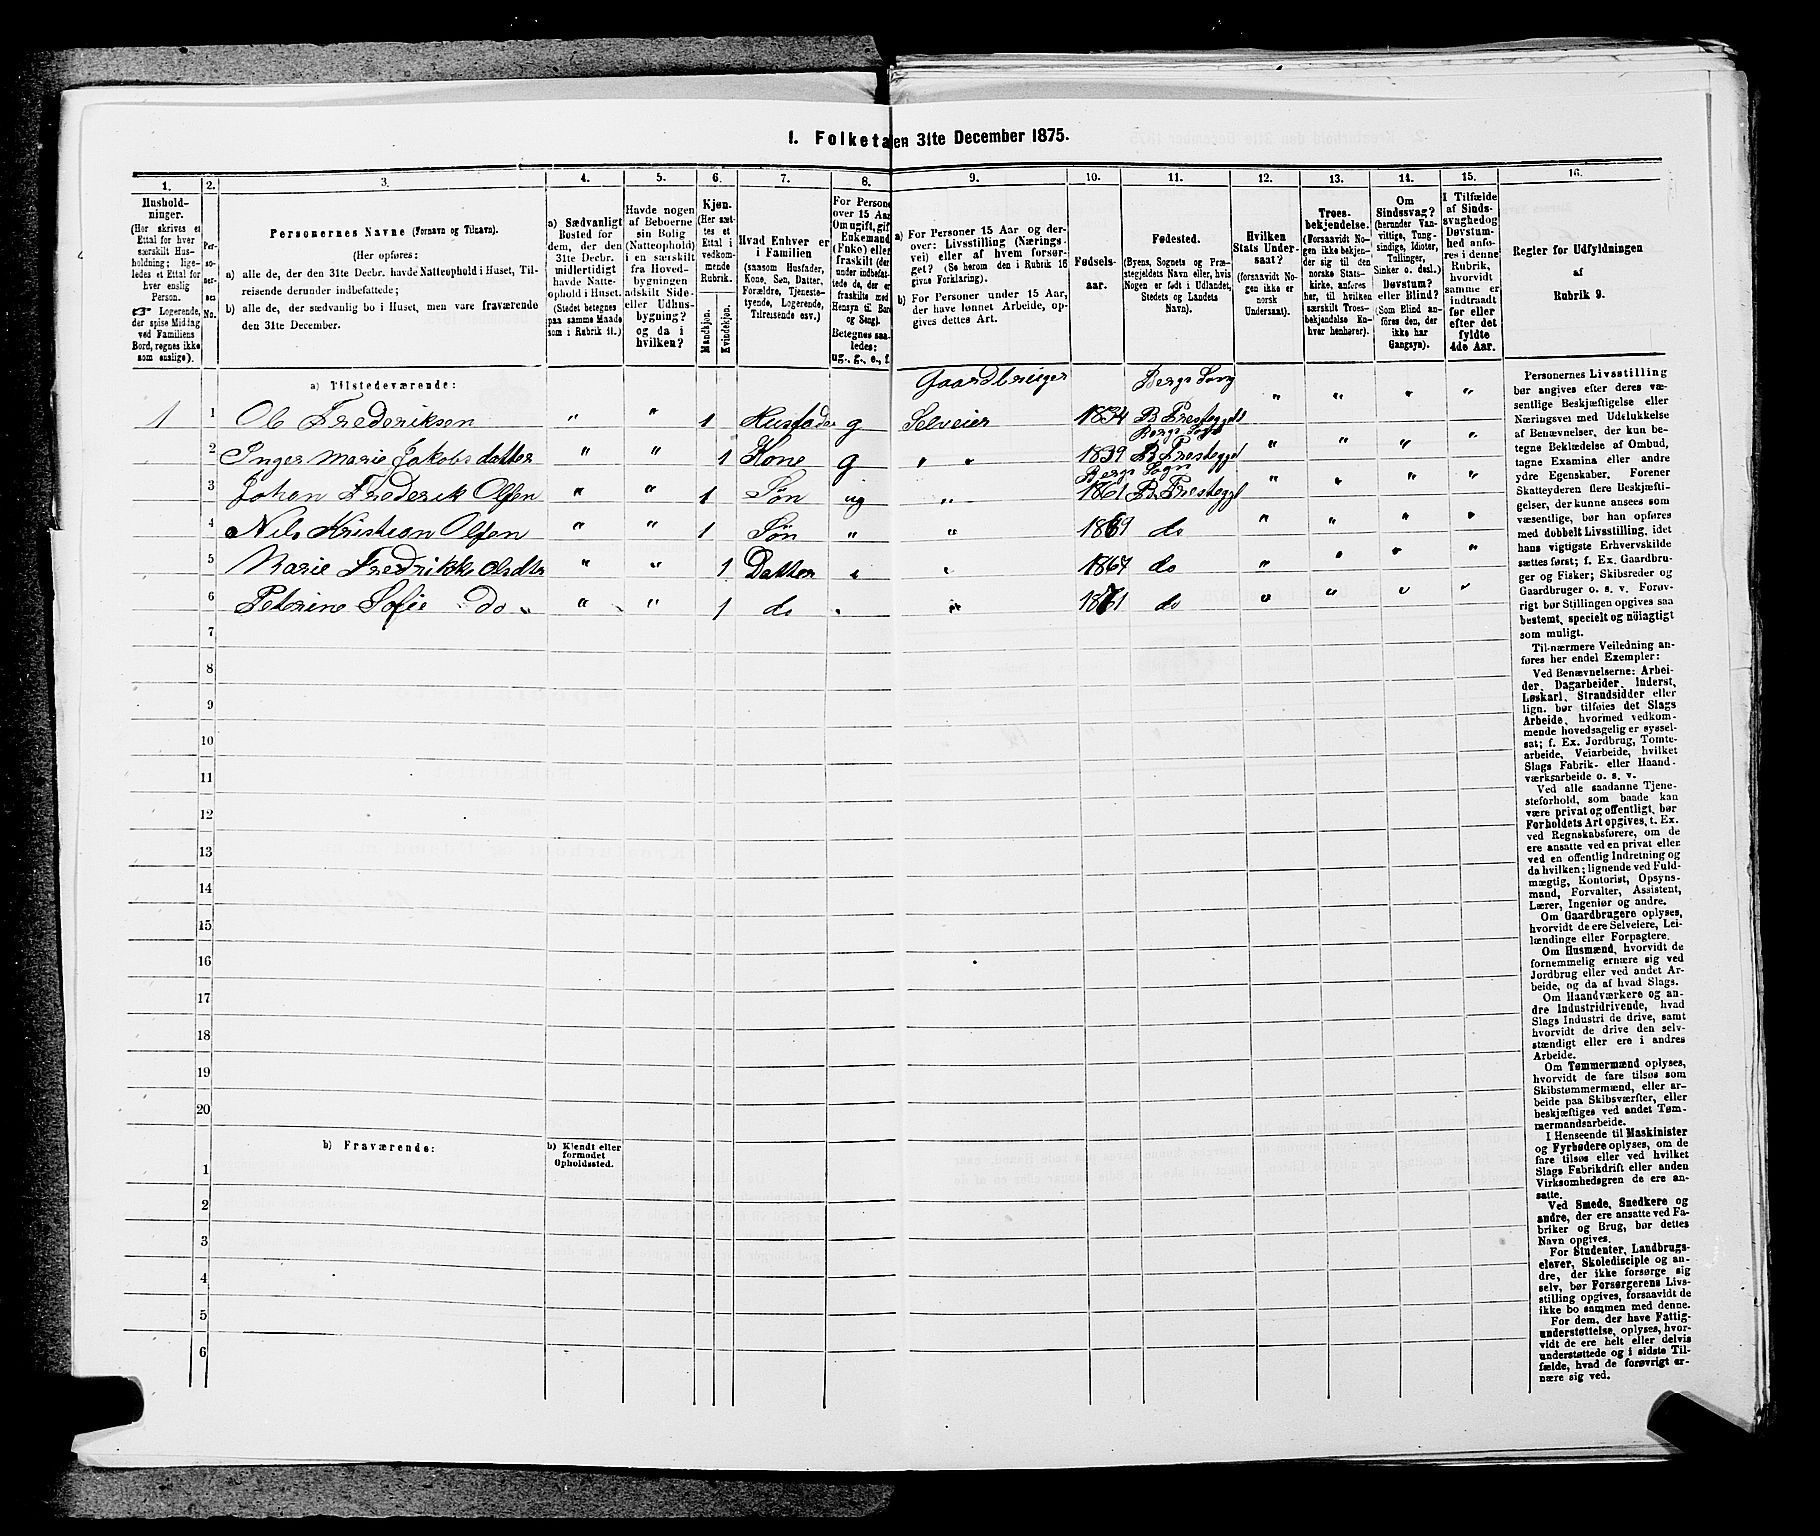 1. Folketæ en 31te December 1875.
1. 2. 3. 4. 5. 6. 7. 8. 9. 10. 11. 12. 13. 14. 15. 16.
Hushold-
ninger.
(Her skrives et
Ettal for hver
særskilt Hus-
holdning; lige-
ledes et Ettal for
hver enslig
Person.
☞ Logerende,
der spise Middag
ved Familiens
Bord, regnes ikke
som enslige).
Per-
so-
ner-
nes
No.
Personernes Navne (Fornavn og Tilnavn).
(Her opføres:
a) alle de, der den 31te Decbr. havde Natteophold i Huset, Til-
reisende derunder indbefattede;
b) alle de, der sædvanlig bo i Huset, men vare fraværende
den 31te December.
a) Sædvanligt
Bosted for
dem, der den
31te Decbr.
midlertidigt
havde Natte-
ophold i Huset.
(Stedet betegnes
paa samme Maade
som i Rubrik 11.)
Havde nogen
af Beboerne
sin Bolig
(Natteophold)
i en særskilt
fra Hoved-
bygningen
adskilt Side-
eller Udhus-
bygning?
og da i
hvilken?
Kjøn.
(Her sæt-
tes et
Ettal i
vedkom-
mende
Rubrik.
Mandkjøn.
Kvindekjøn.
Hvad Enhver er
i Familien
(saasom Husfader,
Kone, Søn, Datter,
Forældre, Tjeneste-
tyende, Logerende,
Tilreisende osv.)
For Persone
over 15 Aar
Om ugift, gif
Enkemand
(Enke) eller
fraskilt (der
under indbefat-
tede de, der er
fraskilte med
Hensyn til Bord
og Seng).
Betegnes saa-
ledes:
ug., g., e., f.
a) For Personer 15 Aar og der-
over: Livsstilling (Nærings-
vei) eller af hvem forsør-
get? (Se herom den i Rubrik 16
givne Forklaring).
b) For Personer under 15 Aar,
der have lønnet Arbeide, op-
gives dettes Art.
Fødsels-
aar.
Fødested.
(Byens, Sognets og Præ-
stegjeldets Navn eller, hvis
Nogen er født i Udlandet,
Stedets og Landets
Navn).
Hvilken
Stats Under-
saat?
(forsaavidt No-
gen ikke er
norsk
Undersaat).
Troes-
bekjendelse.
(Forsaavidt No-
gen ikke bekjen-
der sig til den
norske Stats-
kirke, anføres
her, til hvilken
særskilt Troes-
bekjendelse En-
hver henhører).
Om
Sindssvag?
(herunder Van-
vittige, Tung-
sindige, Idioter,
Tullinger,
Sinker o. desl.)
Døvstum?
eller Blind?
(Som Blind an-
føres den, der
ikke har
Gangsyn).
I Tilfælde
af Sinds-
svaghed og
Døvstum-
hed anfø-
res i denne
Rubrik,
hvorvidt
samme er
indtraadt
før eller
efter det
fyldte
4de Aar.
Regler for Udfyldningen
af
Rubrik 9.
a) Tilstedeværende:
1 1 Ole Frederiksen " " 1 Husfader g Gaardbruger Selveier 1834 Bergs Sogn B Prestegjeld " " " "
2 Inger Marie Jakobsdatter " " 1 Kone g " " 1839 Bergs Sogn B Prestegjel " " " "
3 Johan Frederik Olsen " " 1 Søn ug " 1861 Bergs Sogn B Prestegjl " " " "
4 Nils Kristian Olsen " " 1 Søn " " 1869 do " " " "
5 Marie Fredrikke Olsdtr " " 1 Datter " " 1867 do " " " "
6 Petrine Sofie Do " " " 1 do " " 1871 do " " " "
7
8
9
10
11
12
13
14
15
16
17
18
19
20
b) Fraværende:
b) Kjendt eller
formodet
Opholdssted.
1
2
3
4
5
6
Personernes Livsstilling
bør angives efter deres væ-
sentlige Beskjæftigelse eller
Næringsvei med Udelukkelse
af Benævnelser, der kun be-
tegne Beklædelse af Ombud,
tagne Examina eller andre
ydre Egenskaber. Forener
Skatteyderen flere Beskjæfti-
gelser, der kunne ansees som
væsentlige, bør han opføres
med dobbelt Livsstilling, idet
hans vigtigste Erhvervskilde
sættes først; f. Ex. Gaardbru-
ger og Fisker; Skibsreder og
Gaardbruger o. s. v. Forøv-
rigt bør Stillingen opgives saa
bestemt, specielt og nøiagtigt
som muligt.
Til nærmere Veiledning an-
føres her endel Exempler:
Ved Benævnelserne: Arbei-
der, Dagarbeider, Inderst,
Løskarl, Strandsidder eller
lign. bør tilføies det Slags
Arbeide, hvormed vedkom-
mende hovedsagelig er syssel-
sat; f. Ex. Jordbrug, Tomte-
arbeide, Veiarbeide, hvilket
Slags Fabrik- eller Haand-
værksarbeide o. s. v.
Ved alle saadanne Tjene-
steforhold, som baade kan
være privat og offentligt, bør
Forholdets Art opgives, t. Ex.
ved Regnskabsførere, om de
ere ansatte ved en privat eller
ved en offentlig Indretning og
da hvilken; lignende ved Fuld-
mægtig, Kontorist, Opsyns-
mand, Forvalter, Assistent,
Lærer, Ingeniør og andre.
Om Gaardbrugere oplyses,
hvorvidt de ere Selveiere, Lei-
lændinge eller Forpagtere.
Om Husmænd, hvorvidt de
fornemmelig ernære sig ved
Jordbrug eller ved andet Ar-
beide, og da af hvad Slags.
Om Haandværkere og an-
dre Industridrivende, hvad
Slags Industri de drive, samt
hvorvidt de drive den selv-
stændigt eller ere i andres
Arbeide.
Om Tømmermænd oplyses,
hvorvidt de fare tilsøs som
Skibstømmermænd, eller ar-
beide paa Skibsværfter, eller
beskjæftiges ved andet Tøm-
mermandsarbeide.
I Henseende til Maskinister
og Fyrbødere oplyses, om de
fare tilsøs eller ved hvilket
Slags Fabrikdrift eller anden
Virksomhedsgren de ere an-
satte.
Ved Smede, Snedkere og
andre, der ere ansatte ved Fa-
briker og Brug, bør dettes
Navn opgives.
For Studenter, Landbrugs-
elever, Skoledisciple og an-
dre, der ikke forsørge sig
selv, bør Forsørgerens Livs-
stilling opgives, forsaavidt de
ikke bo sammen med denne.
For dem, der have Fattig-
understøttelse, oplyses, hvor-
vidt de ere helt eller delvis
understøttede og i sidste Til-
fælde, hvad de forøvrigt er-
nære sig ved.